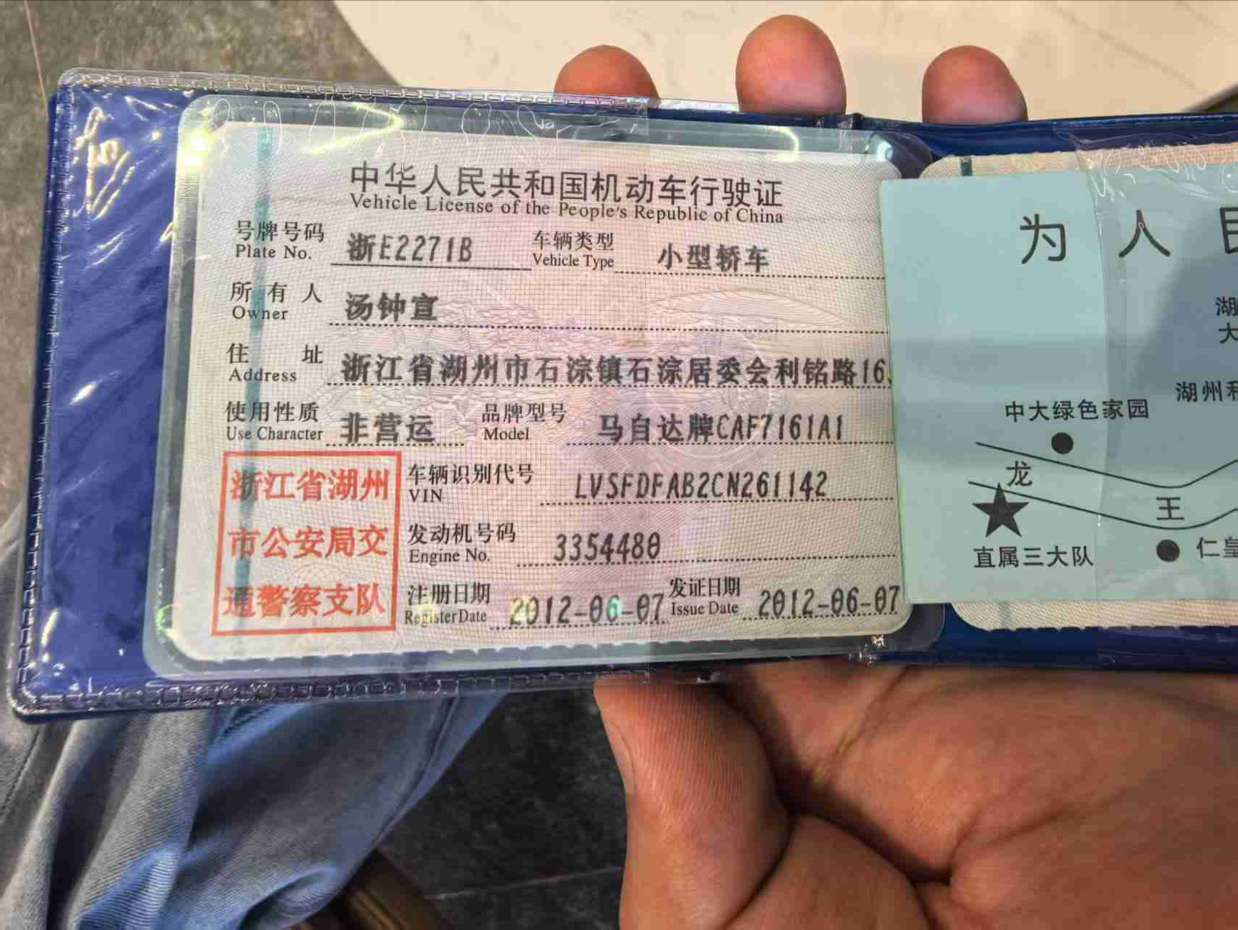 中华人民共和国机动车行驶证
Vehicle License of the People's Republic of China
号牌号码 浙E2271B 车辆类型 小型轿车
Plate No. Vehicle Type
所有人 汤钟宣
Owner
住址 浙江省湖州市石淙镇石淙居委会利铭路16
Address
使用性质 非营运 品牌型号 马自达牌CAF7161A1
Use Character Model
浙江省湖州
市公安局交
通警察支队
车辆识别代号 LVSFDFAB2CN261142
VIN
发动机号码 3354480
Engine No.
注册日期 2012-06-07 发证日期 2012-06-07
Register Date Issue Date
为人
湖
大
湖州
中大绿色家园
龙
王
直属三大队
仁皇